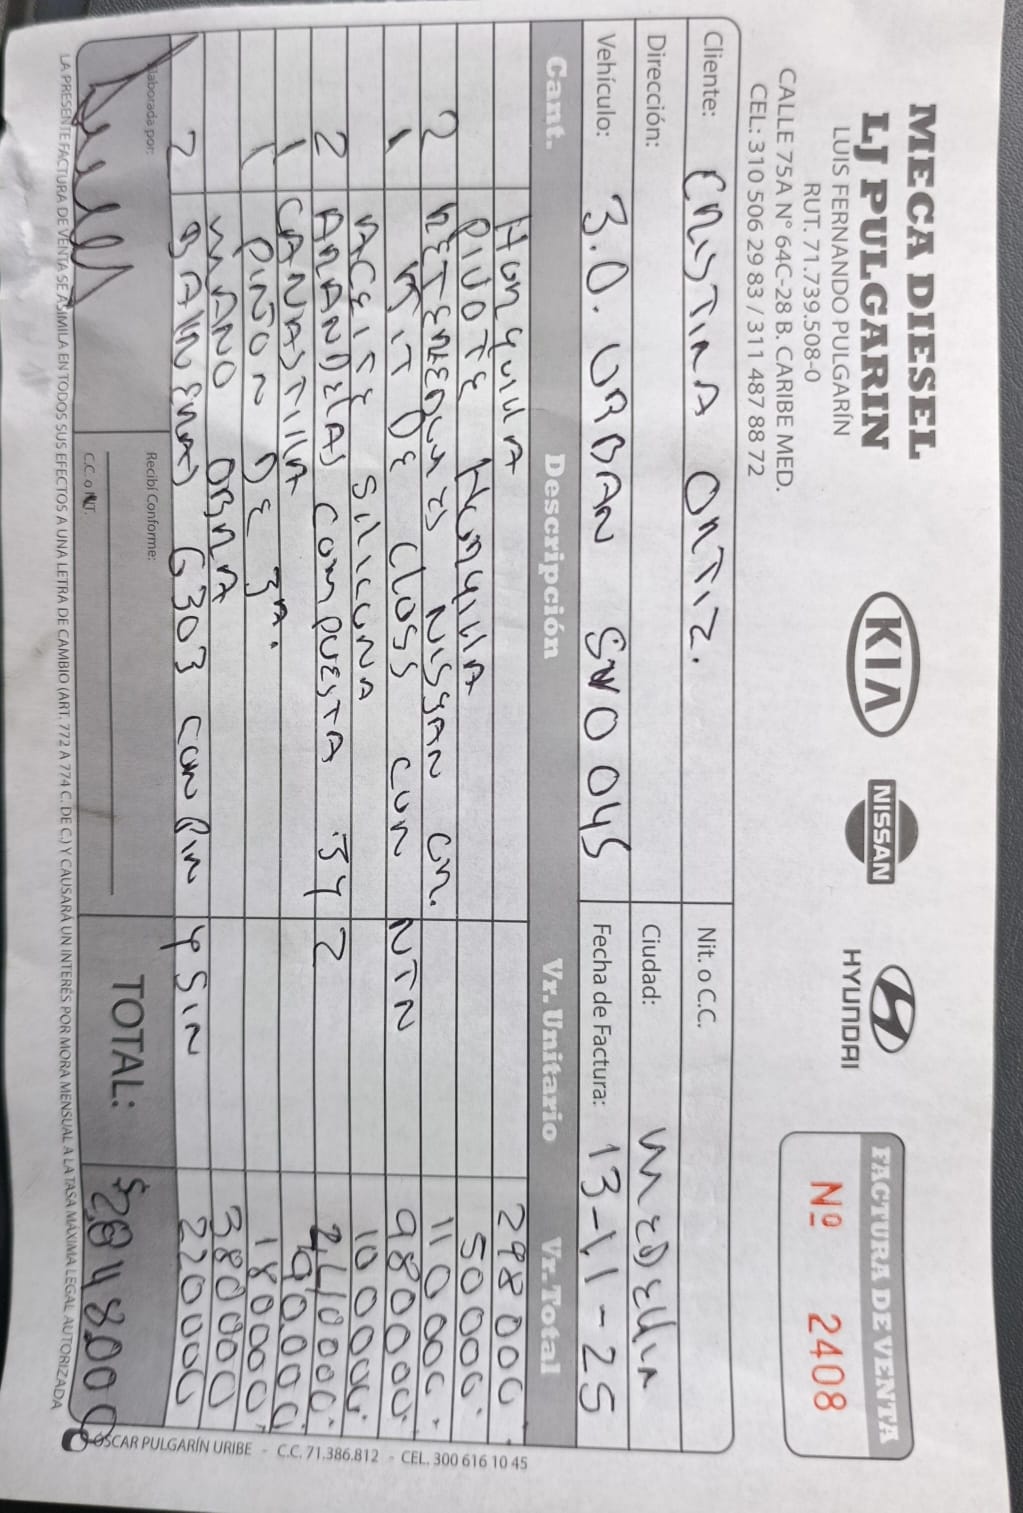 MECA DIESEL
LJ PULGARIN
LUIS FERNANDO PULGARÍN
RUT. 71.739.508-0
CALLE 75A N° 64C-28 B. CARIBE MED.
CEL: 310 506 29 83 / 311 487 88 72
KIA
NISSAN
HYUNDAI
FACTURA DE VENTA
Nº 2408
Cliente: CRISTINA ORTIZ. Nit. o C.C.
Dirección: Ciudad: MEDELLIN
Vehículo: 3.0. URBAN SNO 045 Fecha de Factura: 13-11-25
Cant. Descripción Vr. Unitario Vr. Total
HORQUILLA 298000.
PIVOTE HORQUILLA 50000.
2 RETENEDORES NISSAN OR. 110000.
1 KIT DE CLOSS CON NTN 980000.
ACEITE SILICONA 100000.
2 ARANDELAS COMPUESTA 3Y 2 240000.
1 CANASTILLA 90000.
1 PIÑON DE 3A. 180000.
MANO OBRA 380000
2 BALINERAS 6303 CON PIN Y SIN 220000
Elaborada por:
Recibí Conforme:
C.C. o NIT.
TOTAL: $2648000
LA PRESENTE FACTURA DE VENTA SE ASIMILA EN TODOS SUS EFECTOS A UNA LETRA DE CAMBIO (ART. 772 A 774 C. DE C.) Y CAUSARÁ UN INTERÉS POR MORA MENSUAL A LA TASA MÁXIMA LEGAL AUTORIZADA
OSCAR PULGARÍN URIBE - C.C. 71.386.812 - CEL. 300 616 10 45